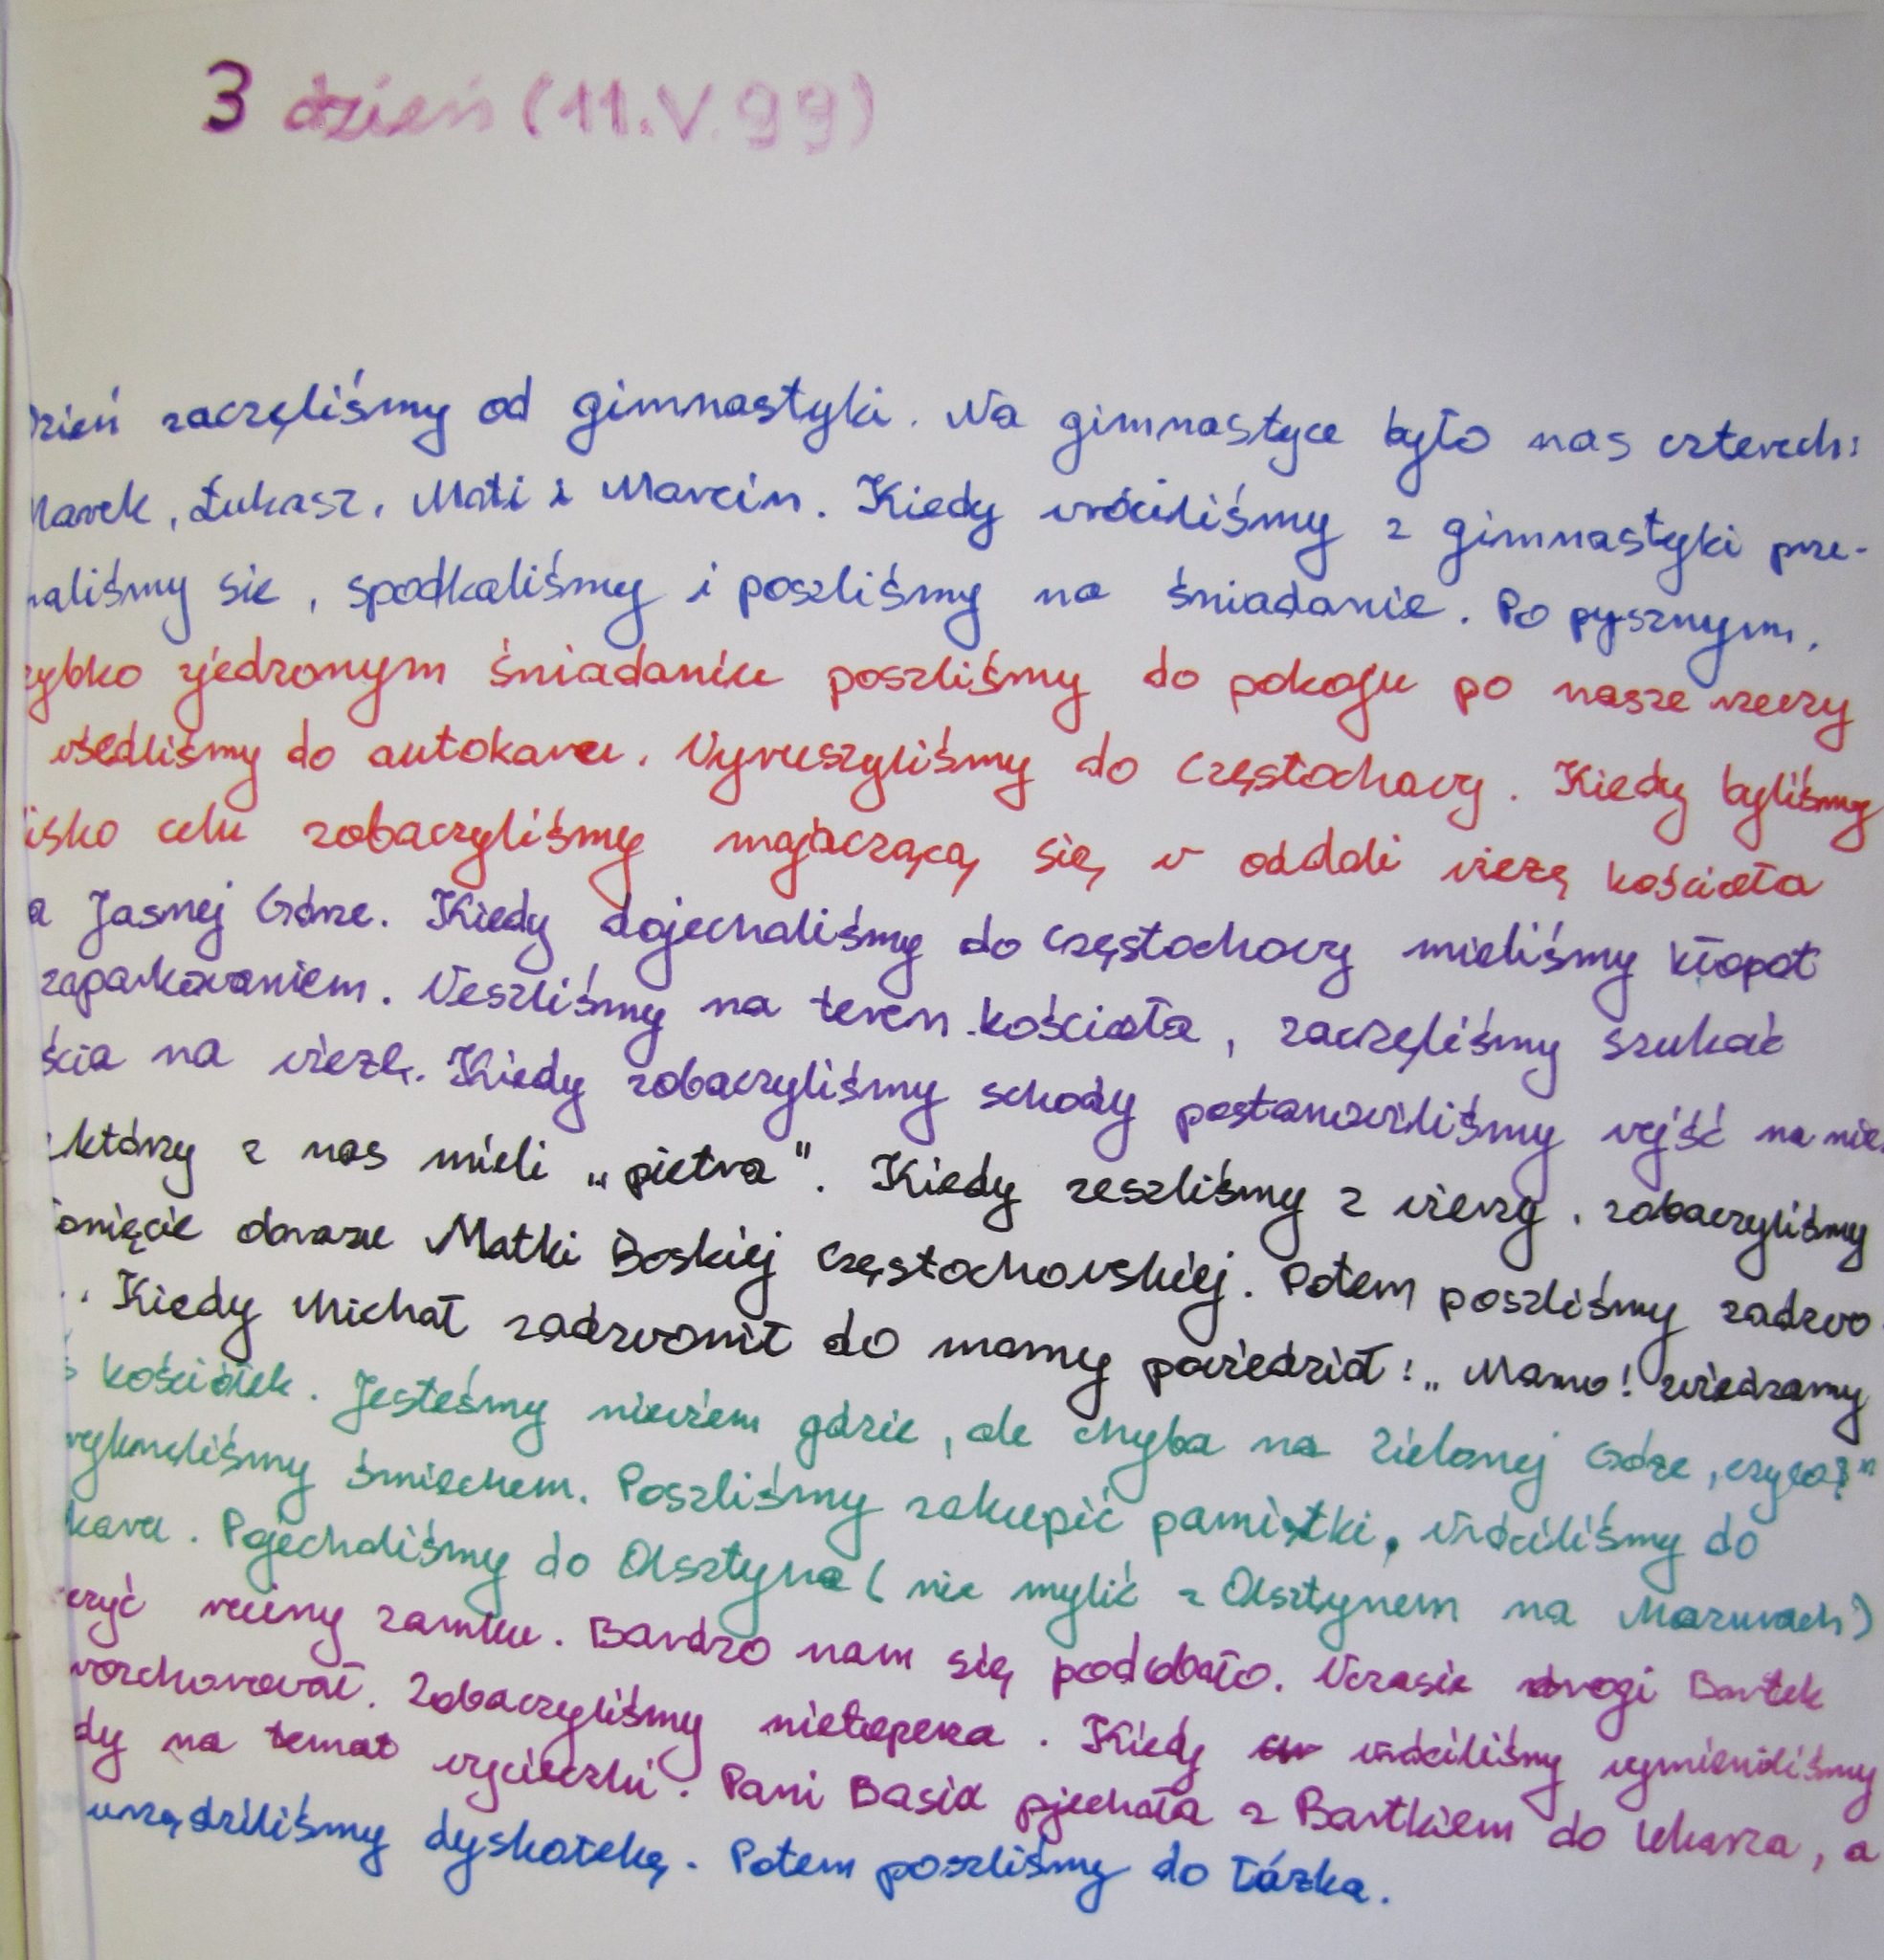 3 dzień (11.V.99)
Dzień zaczęliśmy od gimnastyki. Na gimnastyce było nas czterech:
Marek, Łukasz, Mati i Marcin. Kiedy wróciliśmy z gimnastyki prze-
naliśmy sie, spodkaliśmy i poszliśmy na śniadanie. Po pysznym,
zybko zjedzonym śniadaniu poszliśmy do pokoju po nasze rzeczy
wsedliśmy do autokaru. Wyruszyliśmy do Częstochowy. Kiedy byliśmy
isko celu zobaczyliśmy majaczącą się w oddali wieżę kościoła
a Jasnej Górze. Kiedy dojechaliśmy do Częstochowy mieliśmy kłopot
zaparkowaniem. Weszliśmy na teren kościoła, zaczęliśmy szukać
ścia na wieżę. Kiedy zobaczyliśmy schody postanowiliśmy wejść na nie.
którzy z nas mieli „pietra". Kiedy zeszliśmy z wieży, zobaczyliśmy
onięcie obrazu Matki Boskiej Częstochowskiej. Potem poszliśmy zadzwo
. Kiedy Michał zadzwonił do mamy powiedział: „Mamo! zwiedzamy
ś kościółek. Jesteśmy niewiem gdzie, ale chyba na Zielonej Górze, czy co?"
ryknęliśmy śmiechem. Poszliśmy zakupić pamiątki, wróciliśmy do
karu. Pojechaliśmy do Olsztyna (nie mylić z Olsztynem na Mazurach)
czyć ruiny zamku. Bardzo nam się podobało. Wczasie drogi Bartek
rozchorował. Zobaczyliśmy nietoperza. Kiedy wróciliśmy wymieniliśmy
dy na temat wycieczki. Pani Basia pjechała z Bartkiem do lekarza, a
urządziliśmy dyskotekę. Potem poszliśmy do łóżka.